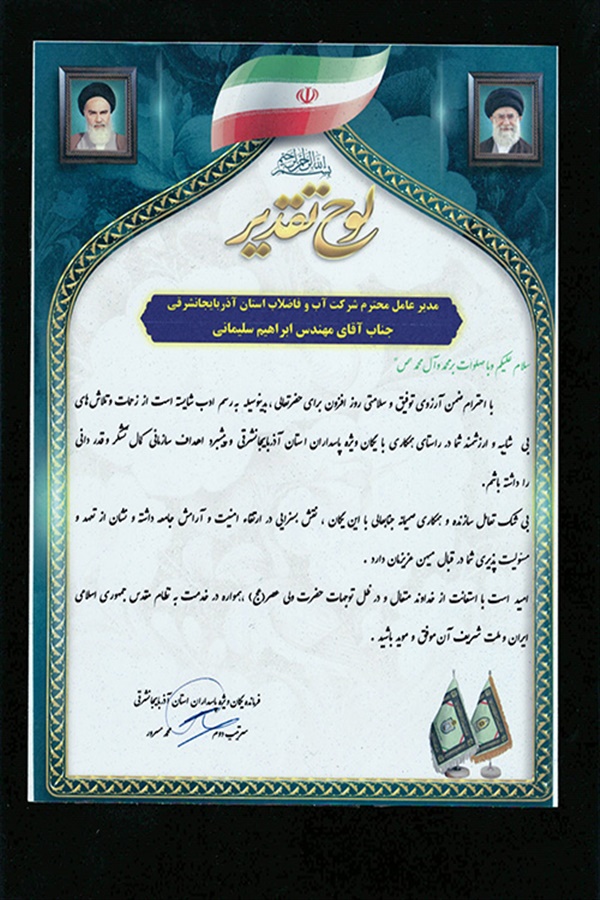 بسم الله الرحمن الرحیم
لوح تقدیر
مدیر عامل محترم شرکت آب و فاضلاب استان آذربایجانشرقی
جناب آقای مهندس ابراهیم سلیمانی
سلام علیکم و با صلوات بر محمد و آل محمد "ص"
با احترام ضمن آرزوی توفیق و سلامتی روز افزون برای حضرتعالی ، بدینوسیله به رسم ادب شایسته است از زحمات و تلاش های
بی شایبه و ارزشمند شما در راستای همکاری با یگان ویژه پاسداران استان آذربایجانشرقی و پیشبرد اهداف سازمانی کمال تشکر و قدر دانی
را داشته باشم.
بی شک تعامل سازنده و همکاری صمیمانه جنابعالی با این یگان ، نقش بسزایی در ارتقاء امنیت و آرامش جامعه داشته و نشان از تعهد و
مسئولیت پذیری شما در قبال میهن عزیزمان دارد .
امید است با استعانت از خداوند متعال و در ظل توجهات حضرت ولی عصر(عج) ،همواره در خدمت به نظام مقدس جمهوری اسلامی
ایران و ملت شریف آن موفق و موید باشید .
فرمانده یگان ویژه پاسداران استان آذربایجانشرقی
سرتیپ دوم محمد مسرور